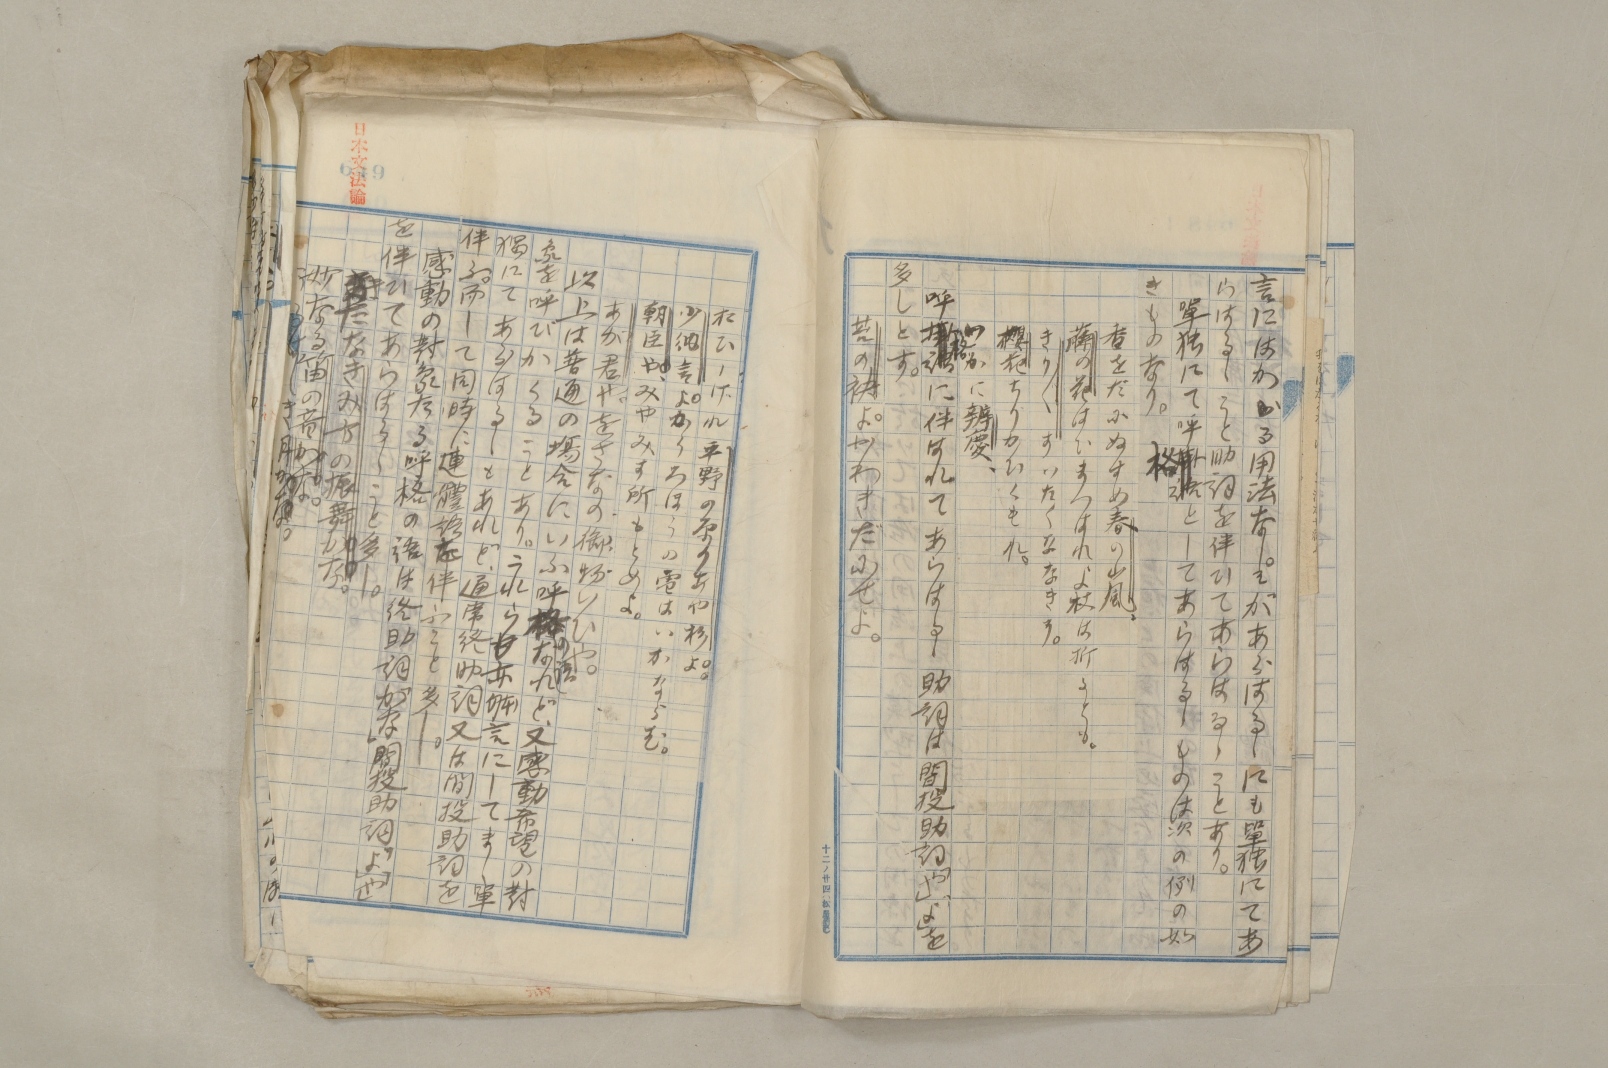 言にはかゝる用法なし。之があらはるゝにも單独にてあ
らはるゝこと助詞を伴ひてあらはるゝことあり。
單独にて呼格としてあらはるゝものは次の例の如
きものなり。
香をだにぬすめ春の山風、
藤の花はひまつはれよ枝は折るとも。
きり〳〵すいたくななきそ。
櫻花ちりかひくもれ。
いかに辨慶、
呼格に伴はれてあらはるゝ助詞は間投助詞「や」「よ」を
多しとす。
苔の袂よかわきだにせよ。
日本文法論
649
おひしげれ平野の原のあや杉よ。
少納言よかうろほうの雪はいかならむ。
朝臣や、みやみす所もとめよ。
あが君やをさなの御物いひや。
以上は普通の場合にいふ呼格の語なれど、又感動希望の對
象を呼びかくることあり。これらも亦体言にしてまゝ單
獨にてあらはるゝもあれど、通常終助詞又は間投助詞を
伴ふ。而して同時に連體格を伴ふこと多し。
感動の對象たる呼格の語は終助詞「かな」間投助詞「よ」「や」
を伴ひてあらはるゝこと多し。
きたなきみ方の振舞かな。
妙なる笛の音かな。
るはしき月かな。
十二ノ廿四